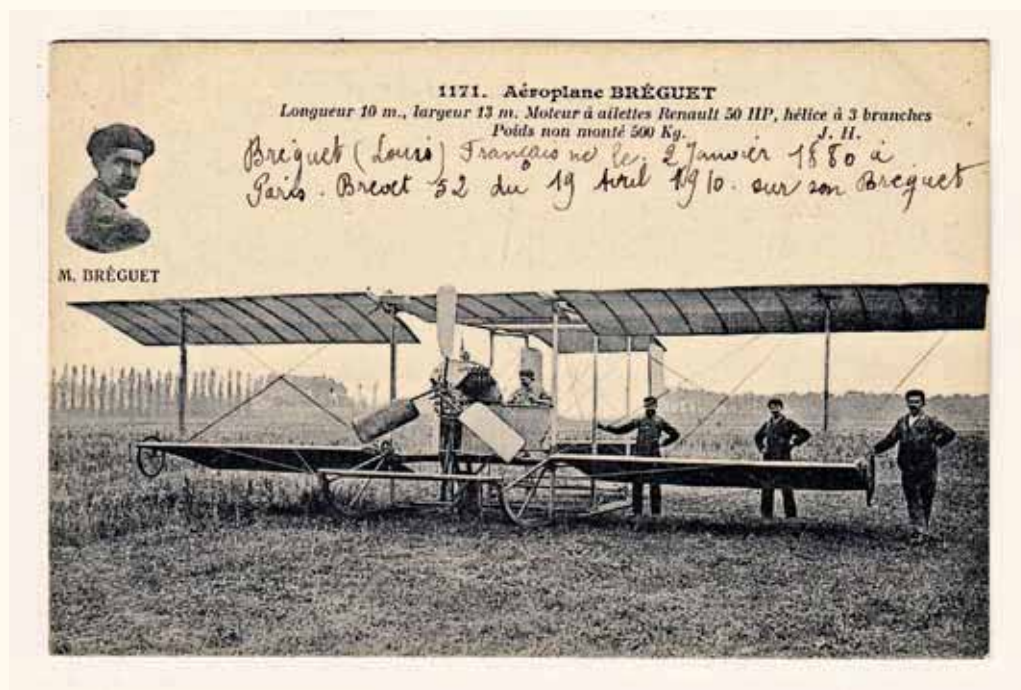 1171. Aéroplane BRÉGUET
Longueur 10 m., largeur 13 m. Moteur à ailettes Renault 50 HP, hélice à 3 branches
Poids non monté 500 Kg. J. H.
Bréguet (Louis) Français né le 2 Janvier 1880 à
Paris. Brevet 52 du 19 Avril 1910. sur son Breguet
M. BRÉGUET